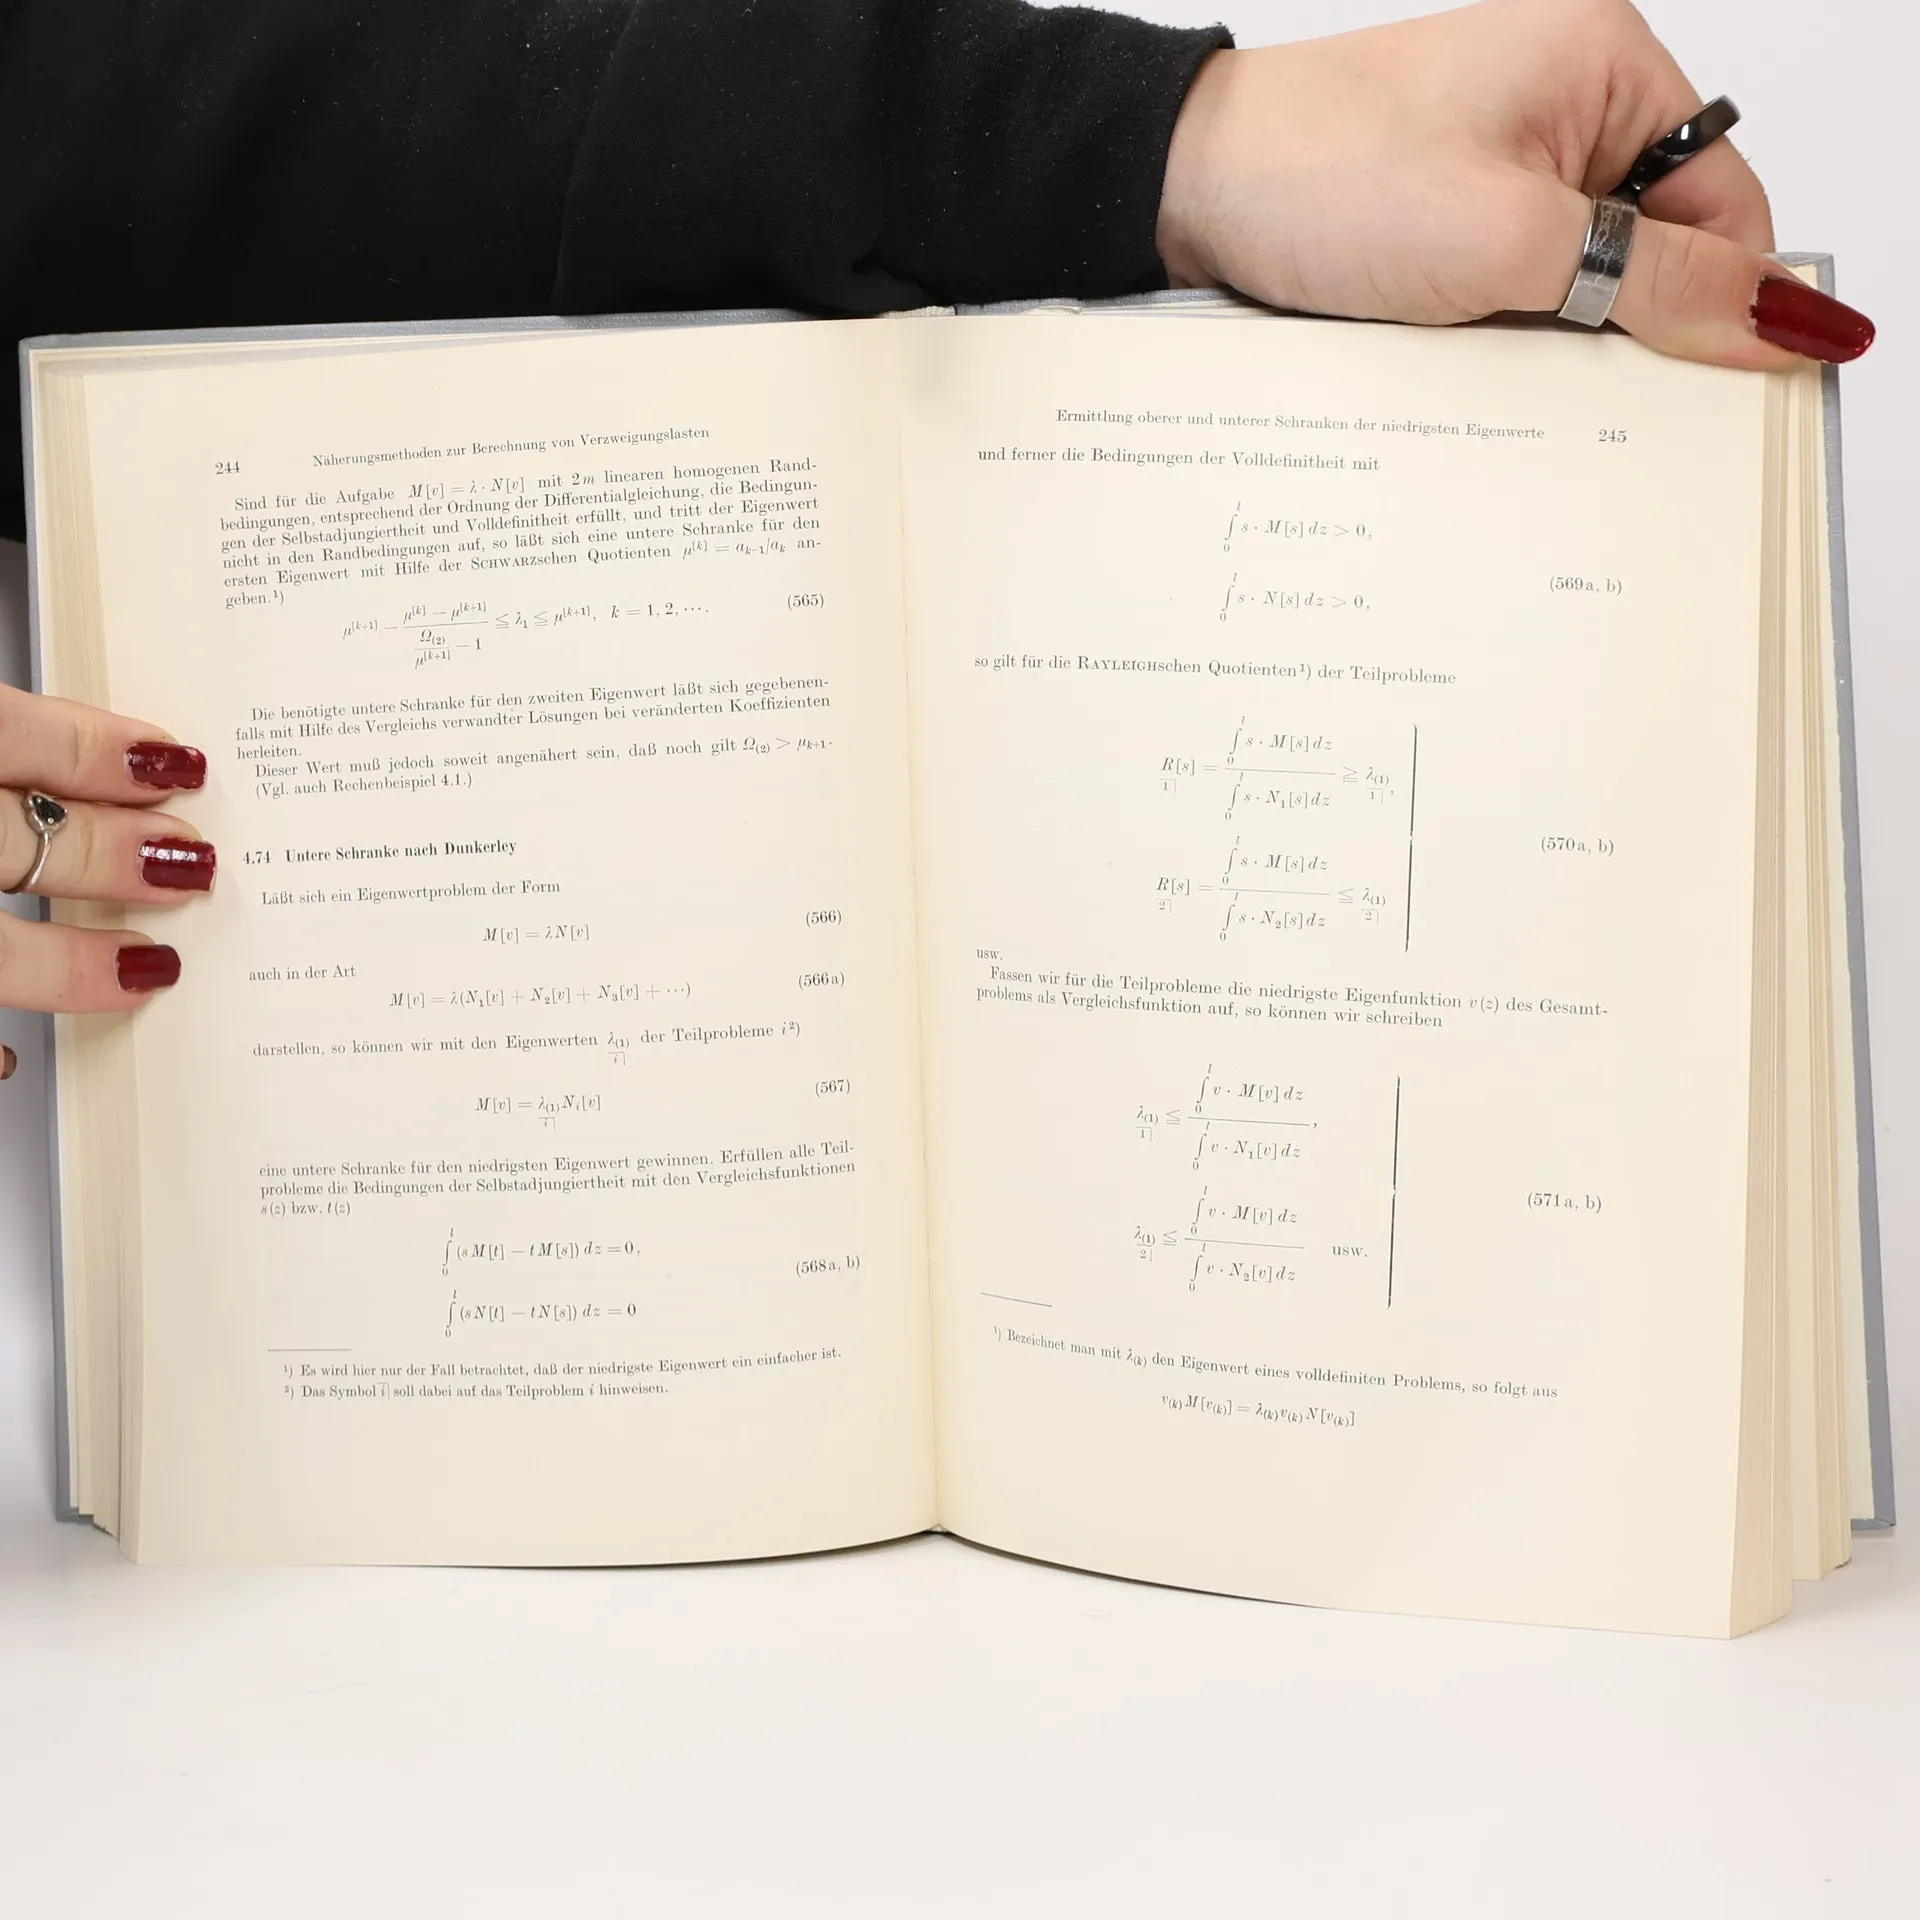 244 Näherungsmethoden zur Berechnung von Verzweigungslasten
Sind für die Aufgabe M[v] = λ · N[v] mit 2m linearen homogenen Rand-
bedingungen, entsprechend der Ordnung der Differentialgleichung, die Bedingun-
gen der Selbstadjungiertheit und Volldefinitheit erfüllt, und tritt der Eigenwert
nicht in den Randbedingungen auf, so läßt sich eine untere Schranke für den
ersten Eigenwert mit Hilfe der SCHWARZschen Quotienten μ^[k] = a_{k−1}/a_k an-
geben.¹)
μ^[k+1] − (μ^[k] − μ^[k+1]) / (Ω_(2)/μ^[k+1] − 1) ≦ λ₁ ≦ μ^[k+1], k = 1, 2, ⋯. (565)
Die benötigte untere Schranke für den zweiten Eigenwert läßt sich gegebenen-
falls mit Hilfe des Vergleichs verwandter Lösungen bei veränderten Koeffizienten
herleiten.
Dieser Wert muß jedoch soweit angenähert sein, daß noch gilt Ω_(2) > μ_{k+1}.
(Vgl. auch Rechenbeispiel 4.1.)
4.74 Untere Schranke nach Dunkerley
Läßt sich ein Eigenwertproblem der Form
M[v] = λN[v] (566)
auch in der Art
M[v] = λ(N₁[v] + N₂[v] + N₃[v] + ⋯) (566a)
darstellen, so können wir mit den Eigenwerten λ_(1) i| der Teilprobleme i²)
M[v] = λ_(1) i| N_i[v] (567)
eine untere Schranke für den niedrigsten Eigenwert gewinnen. Erfüllen alle Teil-
probleme die Bedingungen der Selbstadjungiertheit mit den Vergleichsfunktionen
s(z) bzw. t(z)
∫₀^l (sM[t] − tM[s]) dz = 0,
(568a, b)
∫₀^l (sN[t] − tN[s]) dz = 0
¹) Es wird hier nur der Fall betrachtet, daß der niedrigste Eigenwert ein einfacher ist.
²) Das Symbol i| soll dabei auf das Teilproblem i hinweisen.
Ermittlung oberer und unterer Schranken der niedrigsten Eigenwerte 245
und ferner die Bedingungen der Volldefinitheit mit
∫₀^l s · M[s] dz > 0,
(569a, b)
∫₀^l s · N[s] dz > 0,
so gilt für die RAYLEIGHschen Quotienten¹) der Teilprobleme
R[s] 1| = ∫₀^l s · M[s] dz / ∫₀^l s · N₁[s] dz ≧ λ_(1) 1|,
(570a, b)
R[s] 2| = ∫₀^l s · M[s] dz / ∫₀^l s · N₂[s] dz ≦ λ_(1) 2|
usw.
Fassen wir für die Teilprobleme die niedrigste Eigenfunktion v(z) des Gesamt-
problems als Vergleichsfunktion auf, so können wir schreiben
λ_(1) 1| ≦ ∫₀^l v · M[v] dz / ∫₀^l v · N₁[v] dz,
(571a, b)
λ_(1) 2| ≦ ∫₀^l v · M[v] dz / ∫₀^l v · N₂[v] dz usw.
¹) Bezeichnet man mit λ_(k) den Eigenwert eines volldefiniten Problems, so folgt aus
v_(k) M[v_(k)] = λ_(k) v_(k) N[v_(k)]